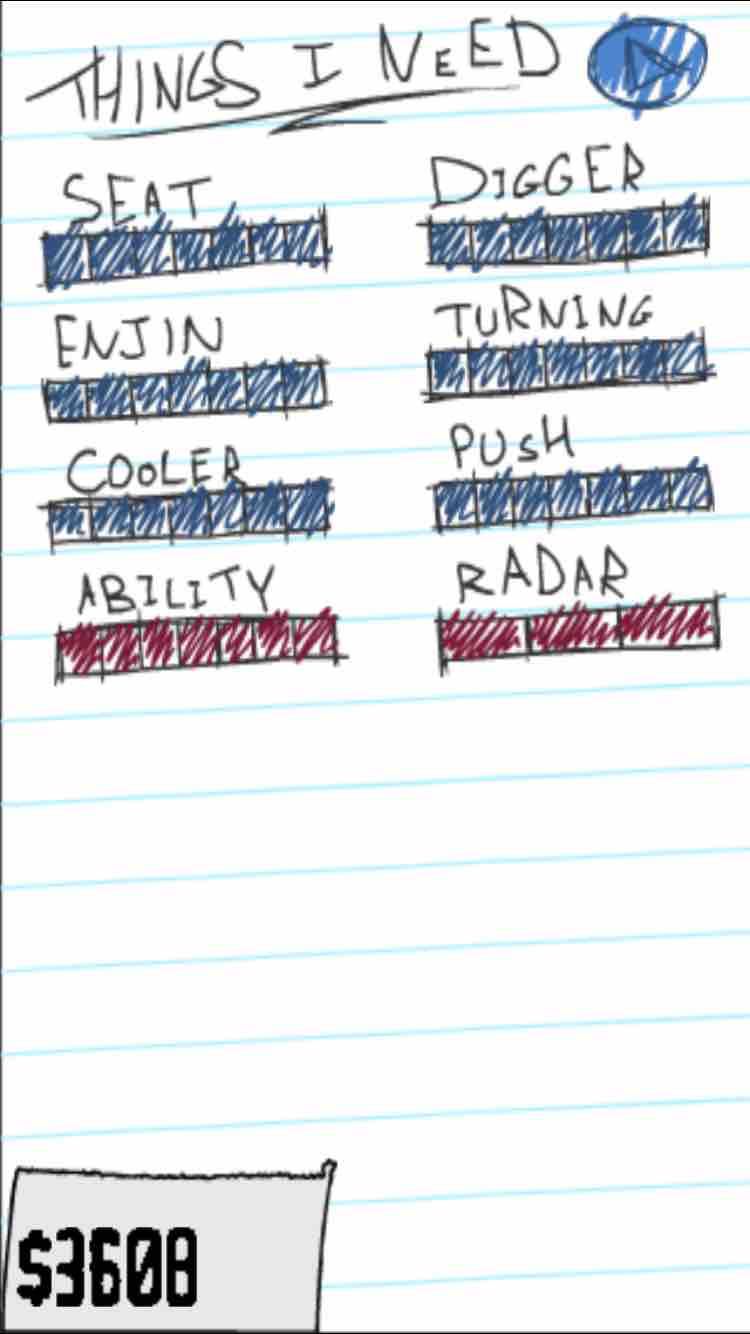 THINGS I NEED
SEAT DIGGER
ENJIN TURNING
COOLER PUSH
ABILITY RADAR
$3608